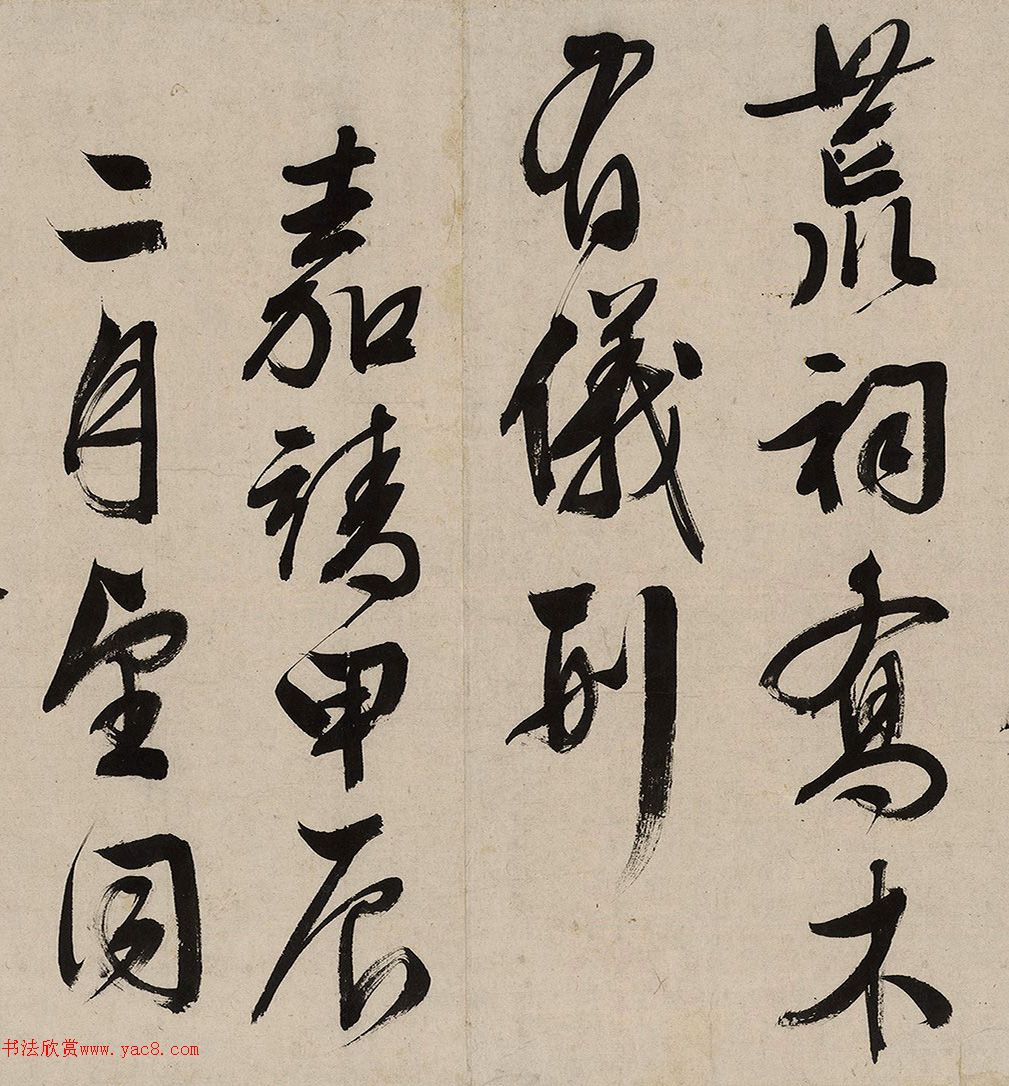 荒祠喬木
有儀刑
嘉靖甲辰
二月望同
书法欣赏www.yac8.com